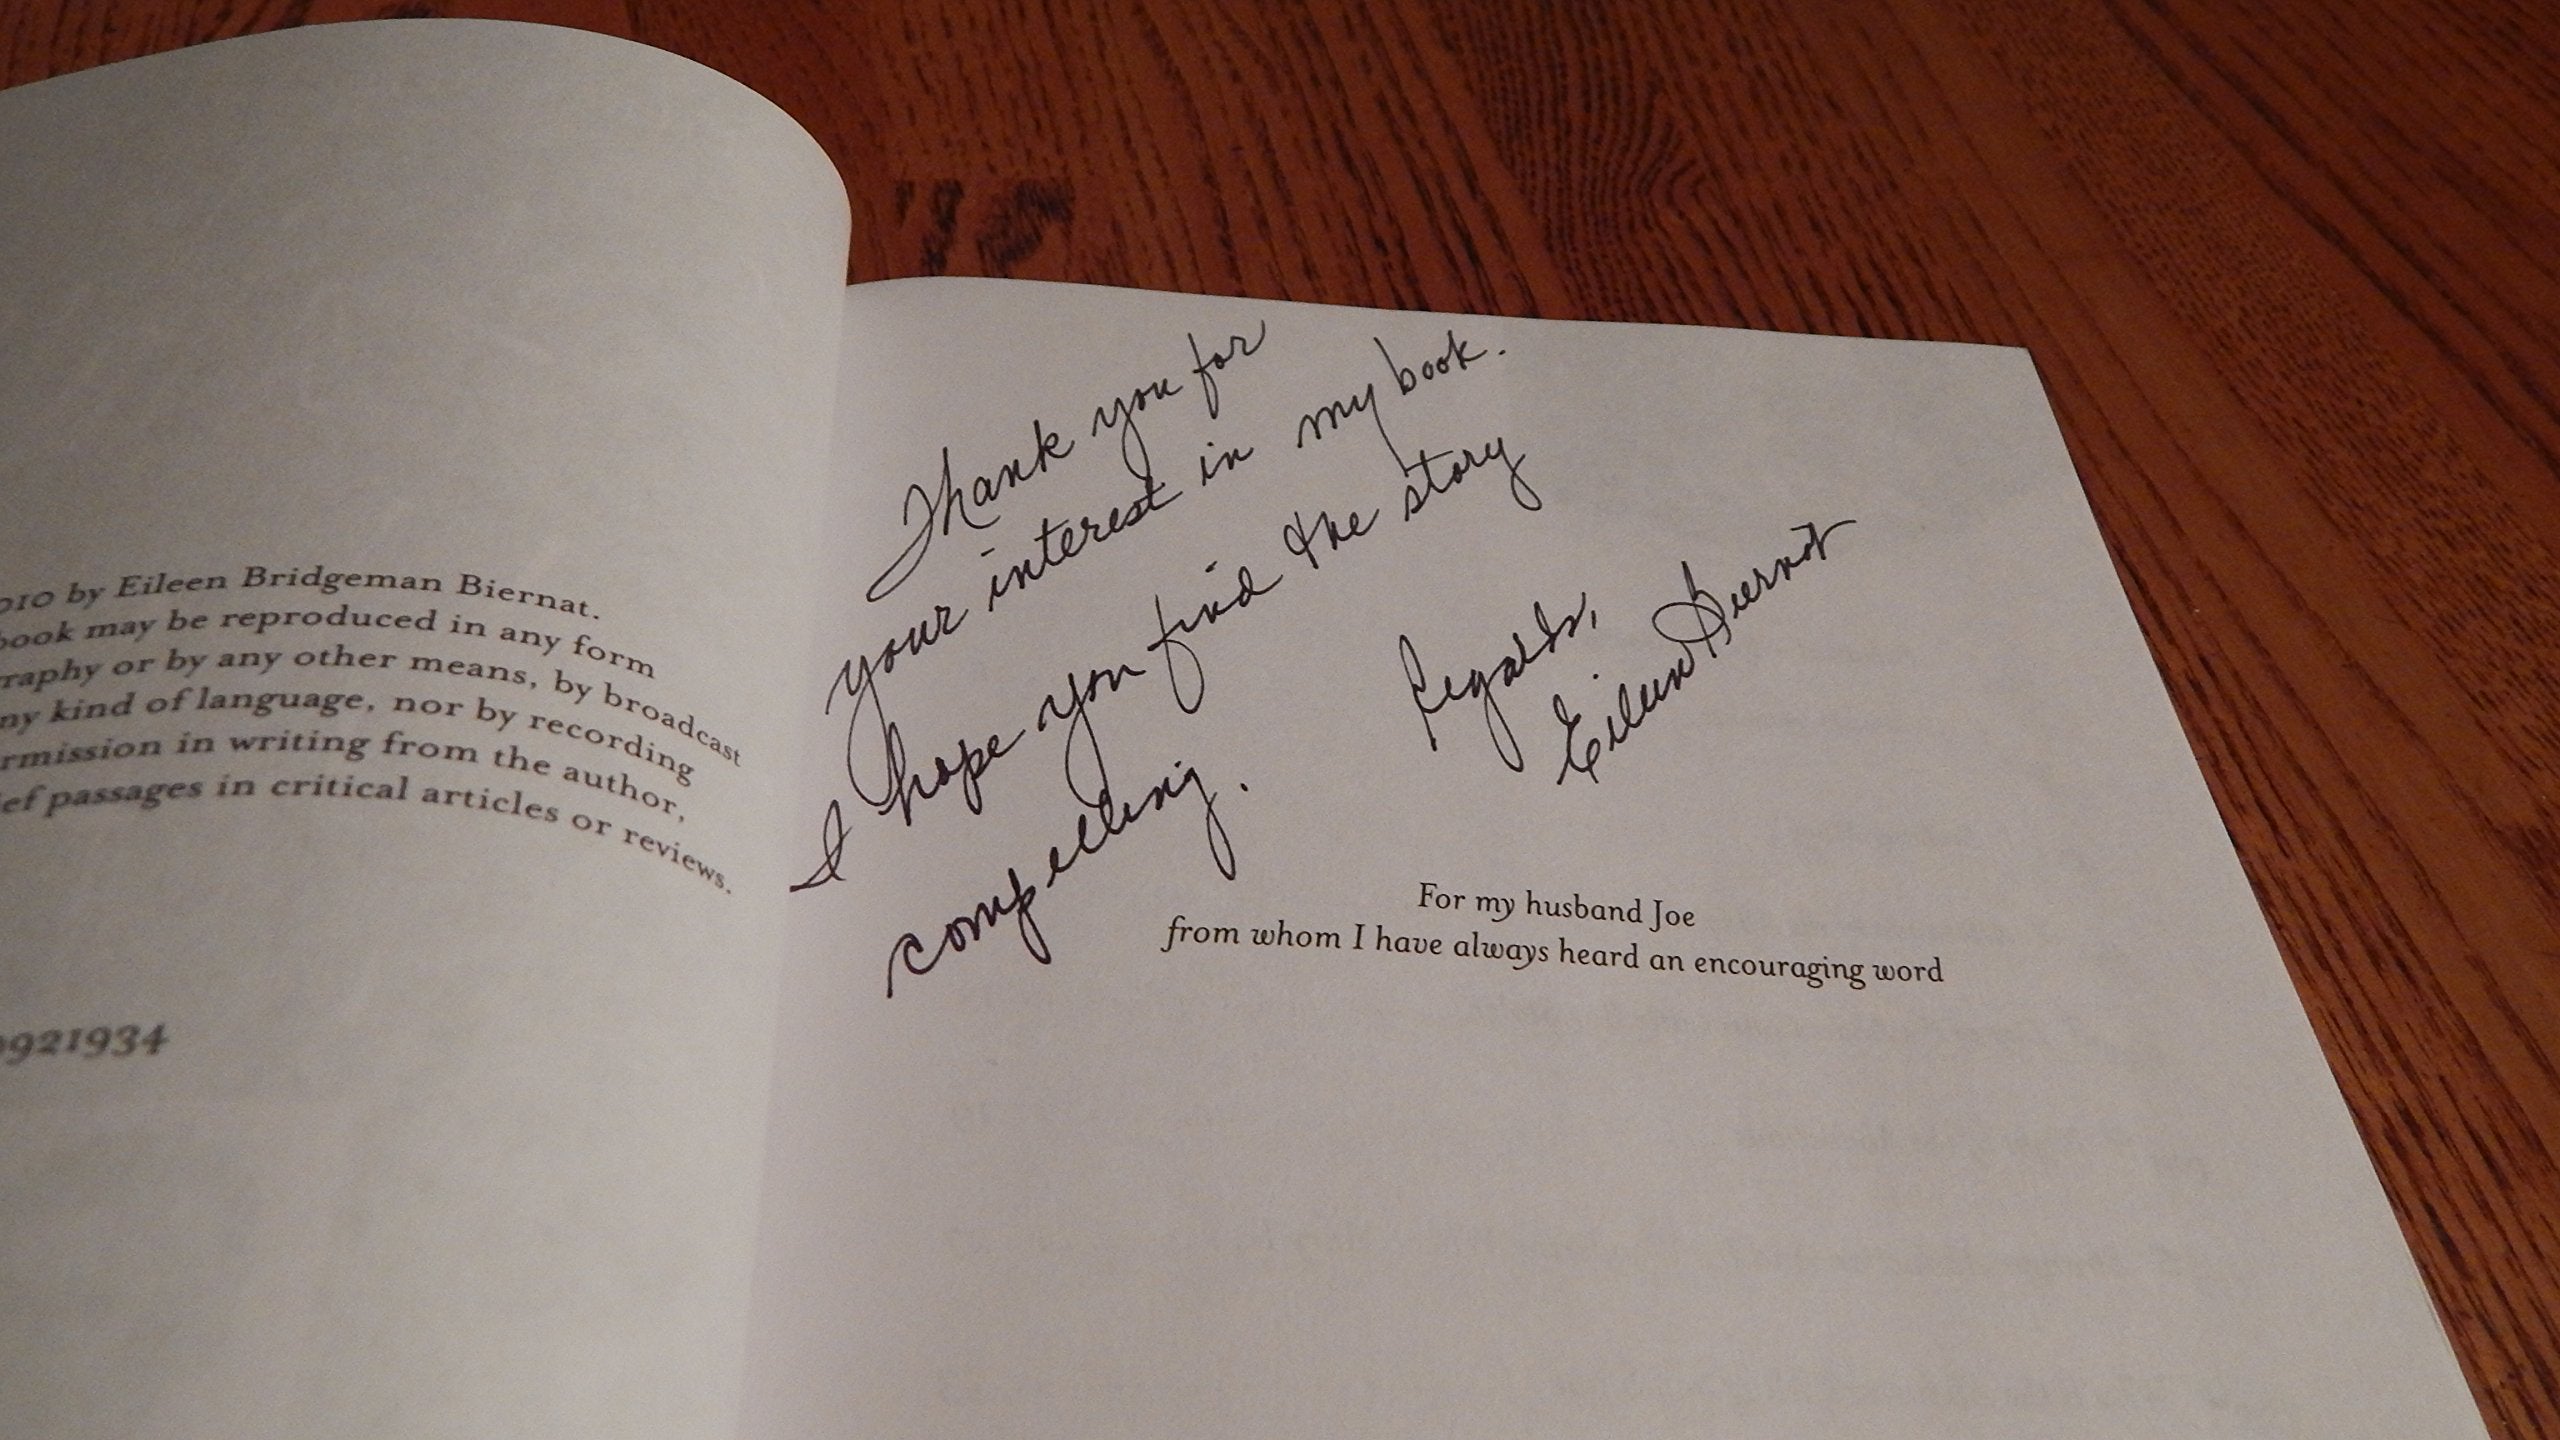 010 by Eileen Bridgeman Biernat.
book may be reproduced in any form
raphy or by any other means, by broadcast
ny kind of language, nor by recording
rmission in writing from the author,
ief passages in critical articles or reviews.
0921934
Thank you for
your interest in my book.
I hope you find the story
compelling.
Regards,
Eileen Biernat
For my husband Joe
from whom I have always heard an encouraging word